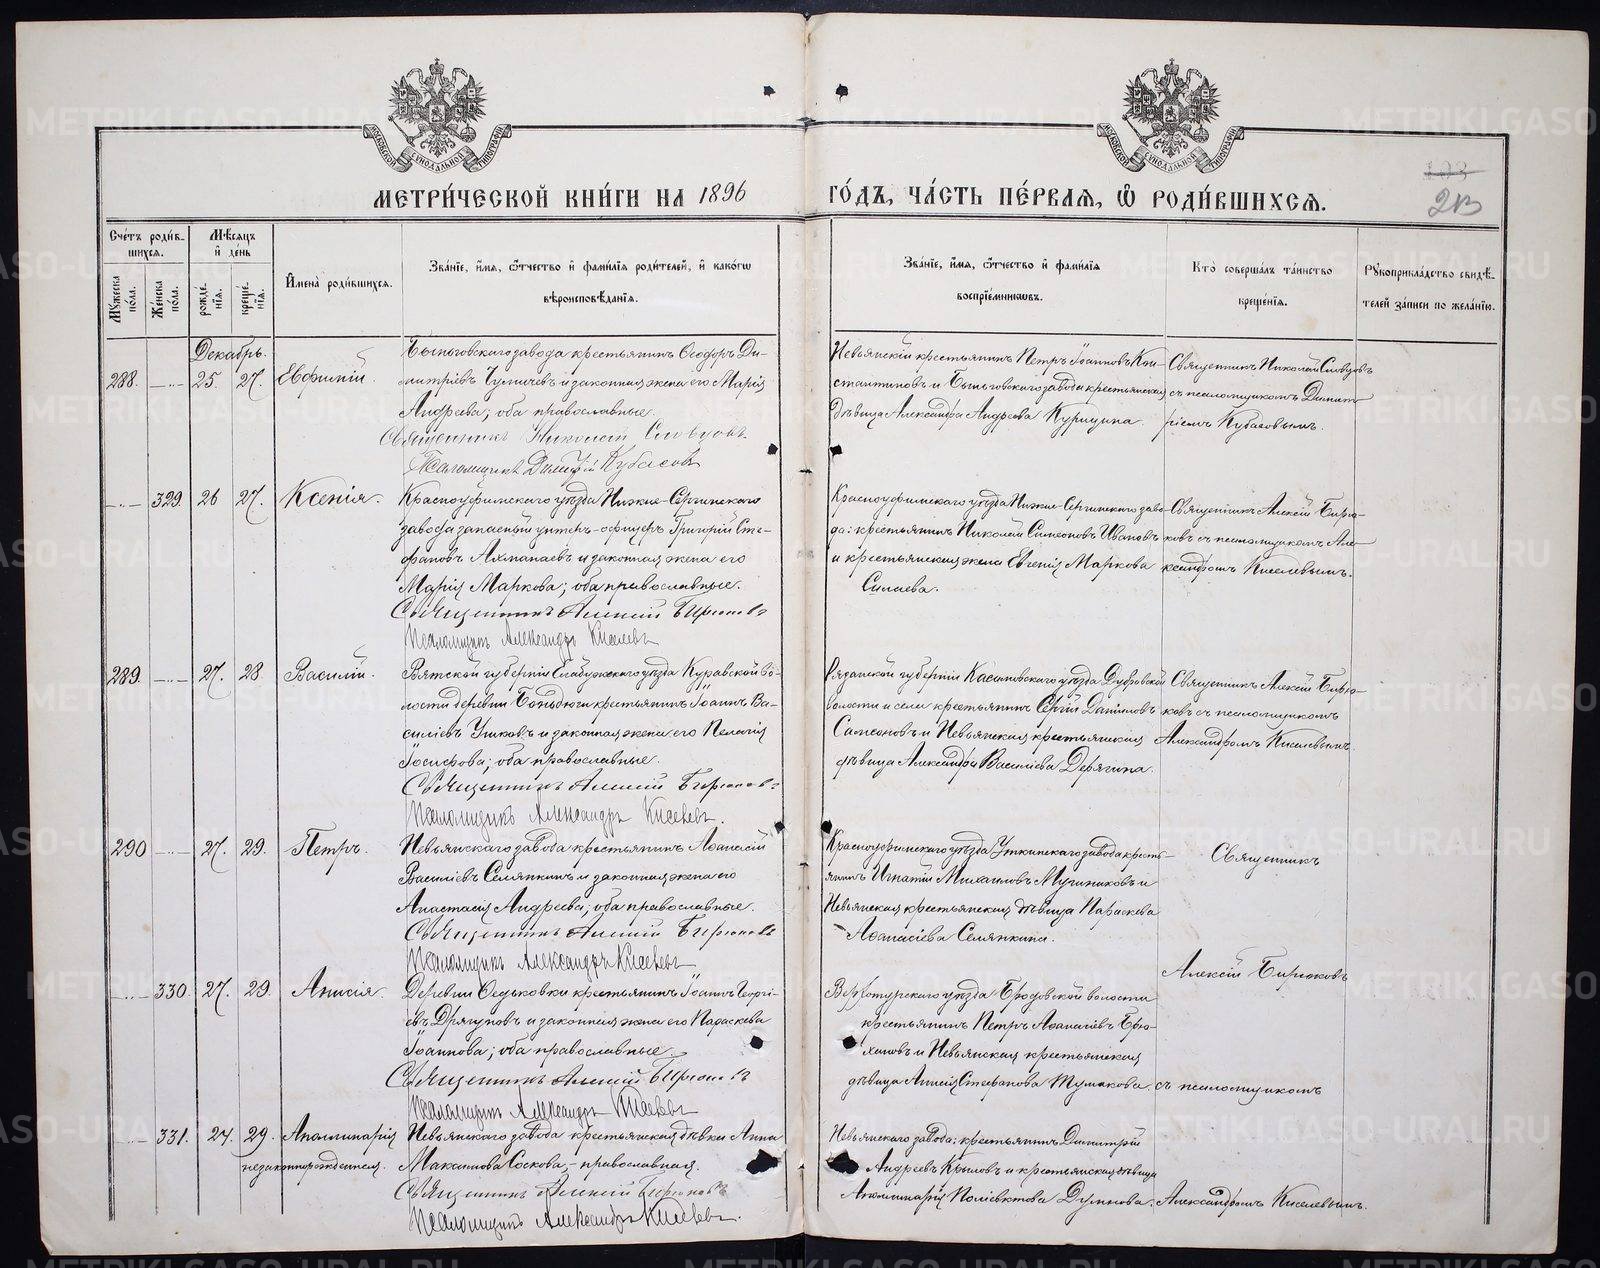 МОСКОВСКОЙ СѴНОДАЛЬНОЙ ТИПОГРАФІИ
МОСКОВСКОЙ СѴНОДАЛЬНОЙ ТИПОГРАФІИ
МЕТРИ́ЧЕСКОЙ КНИ́ГИ НА 1896
ГО́ДЪ, ЧА́СТЬ ПЕ́РВАЯ, Ѽ РОДИ́ВШИХСЯ.
103
213
Сче́тъ роди́в-
шихся.
Мꙋ́жеска по́ла.
Же́нска по́ла.
Мѣ́сяцъ
и҆ де́нь
рожде́-
нїя.
креще́-
нїя.
И҆мена̀ роди́вшихся.
Зва́нїе, и҆́мя, ѻ҆́тчество и҆ фами́лїя роди́телей, и҆ како́гѡ
вѣроисповѣ́данїя.
Зва́нїе, и҆́мя, ѻ҆́тчество и҆ фами́лїя
воспрїе́мникѡвъ.
Кто̀ соверша́лъ та́инство
креще́нїя.
Рꙋкоприкла́дство свидѣ́-
телей за́писи по жела́нїю.
Декабрь.
288. 25. 27. Евфимій.
Быньговскаго завода крестьянинъ Ѳеодоръ Ди-
митріевъ и законная жена его Марія
Андреева; оба православные.
Священникъ Николай Словцовъ.
Псаломщикъ Димитрій Кубасовъ
Невьянскій крестьянинъ Петръ Іоанновъ Кон-
стантиновъ и Быньговскаго завода крестьянская
дѣвица Александра Андреева Курицина.
Священникъ Николай Словцовъ
съ псаломщикомъ Димит-
ріемъ Кубасовымъ.
329. 26 27. Ксенія.
Красноуфимскаго уѣзда Нижне-Сергинскаго
завода запасный унтеръ-офицеръ Григорій Сте-
фановъ и законная жена его
Марія Маркова; оба православные.
Священникъ Алексій Бирюковъ
Псаломщикъ Александръ Киселевъ
Красноуфимскаго уѣзда Нижне-Сергинскаго заво-
да: крестьянинъ Николай Симеоновъ Ивановъ
и крестьянская жена Евгенія Маркова
Силаева.
Священникъ Алексій Бирю-
ковъ съ псаломщикомъ Але-
ксандромъ Киселевымъ.
289. 27. 28 Василій.
Вятской губерніи Елабужскаго уѣзда Куравской во-
лости деревни Бондюги крестьянинъ Іоаннъ Ва-
силіевъ Ушковъ и законная жена его Пелагія
Іосифова; оба православные.
Священникъ Алексій Бирюковъ
Псаломщикъ Александръ Киселевъ.
Рязанской губерніи Касимовскаго уѣзда Дубровской
волости и села крестьянинъ Сергій Даниловъ
Самсоновъ и Невьянская крестьянская
дѣвица Александра Васильева Дерягина.
Священникъ Алексій Бирю-
ковъ съ псаломщикомъ
Александромъ Киселевымъ.
290 27. 29. Петръ.
Невьянскаго завода крестьянинъ Аѳанасій
Василіевъ Селянкинъ и законная жена его
Анастасія Андреева; оба православные.
Священникъ Алексій Бирюковъ
Псаломщикъ Александръ Киселевъ
Красноуфимскаго уѣзда Уткинскаго завода кресть-
янинъ Игнатій Михаиловъ и
Невьянская крестьянская дѣвица Параскева
Аѳанасіева Селянкина.
Священникъ
Алексій Бирюковъ
330. 27. 29. Анисія.
Деревни Ѳедьковки крестьянинъ Іоаннъ Георгі-
евъ Дрягуновъ и законная жена его Параскева
Іоаннова; оба православные.
Священникъ Алексій Бирюковъ
Псаломщикъ Александръ Киселевъ
Верхотурскаго уѣзда Бродовской волости
крестьянинъ Петръ Аѳанасіевъ Брю-
хановъ и Невьянская крестьянская
дѣвица Анисія Стефанова Тумакова.
съ псаломщикомъ
331. 27. 29. Аполлинарія
незаконнорожденная.
Невьянскаго завода крестьянская дѣвка Анна
Максимова Соскова, - православная.
Священникъ Алексій Бирюковъ
Псаломщикъ Александръ Киселевъ.
Невьянскаго завода: крестьянинъ Димитрій
Андреевъ Крыловъ и крестьянская дѣвица
Аполлинарія Поліевктова Думнова.
Александромъ Киселевымъ.
METRIKI.GASO-URAL.RU